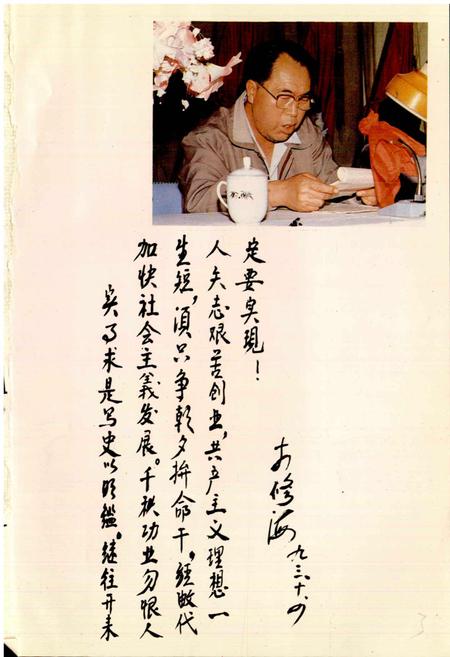 实事求是写史以明鑑,继往开来
加快社会主義发展。千秋功业勿恨人
生短,须只争朝夕拚命干,经数代
人矢志艰苦创业,共产主义理想一
定要实现!
修海
九三.十.四
3